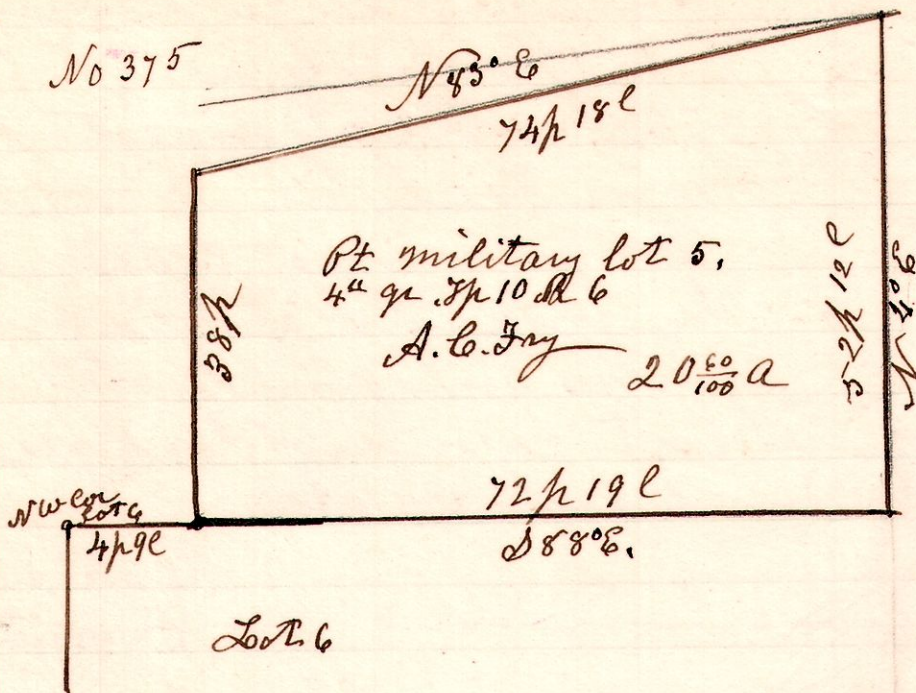 No 375
N 83° E
74p 18l
Pt military lot 5,
4th qr. Tp 10 R 6
A. C. Fry
20 60/100 A
38p
52p 12l
N 4° E
72p 19l
S 88° E.
NW Cor
Lot 6
4p 9l
Lot 6